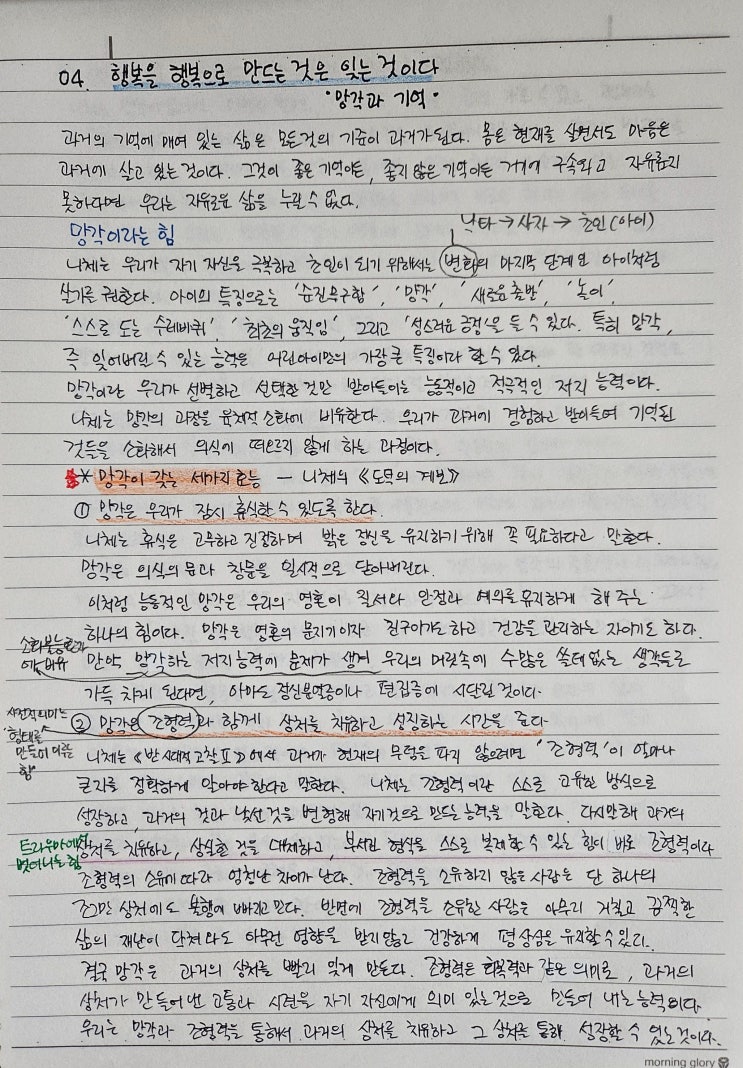 04. 행복을 행복으로 만드는 것은 잊는 것이다
"망각과 기억"
과거의 기억에 매여 있는 삶은 모든것의 기준이 과거가 된다. 몸은 현재를 살면서도 마음은
과거에 살고 있는 것이다. 그것이 좋은 기억이든, 좋지 않은 기억이든 거기에 구속되고 자유롭지
못하다면 우리는 자유로운 삶을 누릴 수 없다.
낙타→사자→초인(아이)
망각이라는 힘
니체는 우리가 자기 자신을 극복하고 초인이 되기 위해서는 변화의 마지막 단계인 아이처럼
살기를 권한다. 아이의 특징으로는 '순진무구함', '망각', '새로운 출발', '놀이',
'스스로 도는 수레바퀴', '최초의 움직임', 그리고 '성스러운 긍정'을 들 수 있다. 특히 망각,
즉 잊어버릴 수 있는 능력은 어린아이만의 가장 큰 특징이라 할 수 있다.
망각이란 우리가 선별하고 선택한 것만 받아들이는 능동적이고 적극적인 저지 능력이다.
니체는 망각의 과정을 육체적 소화에 비유한다. 우리가 과거에 경험하고 받아들여 기억된
것들을 소화해서 의식에 떠오르지 않게 하는 과정이다.
* 망각이 갖는 세가지 효능 — 니체의 《도덕의 계보》
① 망각은 우리가 잠시 휴식할 수 있도록 한다.
니체는 휴식은 고요하고 진정하며 밝은 정신을 유지하기 위해 꼭 필요하다고 말한다.
망각은 의식의 문과 창문을 일시적으로 닫아버린다.
이처럼 능동적인 망각은 우리의 영혼이 질서와 안정과 예의를 유지하게 해 주는
하나의 힘이다. 망각은 영혼의 문지기이자 친구이기도 하고 건강을 관리하는 자이기도 하다.
소화불능환자에 비유
만약 망각하는 저지능력에 문제가 생겨 우리의 머릿속에 수많은 쓸데없는 생각들로
가득 차게 된다면, 아마도 정신분열증이나 편집증에 시달릴 것이다.
② 망각은 조형력과 함께 상처를 치유하고 성장하는 시간을 준다
사전적의미는
'형태를
만들어 이루는
힘'
니체는 《반시대적 고찰Ⅱ》에서 과거가 현재의 무덤을 파지 않으려면 '조형력'이 얼마나
큰지를 정확하게 알아야 한다고 말한다. 니체는 조형력이란 스스로 고유한 방식으로
성장하고, 과거의 것과 낯선 것을 변형해 자기것으로 만드는 능력을 말한다. 다시말해 과거의
트라우마에서
벗어나는 힘
상처를 치유하고, 상실한 것을 대체하고, 부서진 형식을 스스로 복제할 수 있는 힘이 바로 조형력이다
조형력의 소유에 따라 엄청난 차이가 난다. 조형력을 소유하지 않은 사람은 단 하나의
조그만 상처에도 불행에 빠지고 만다. 반면에 조형력을 소유한 사람은 아무리 거칠고 끔찍한
삶의 재난이 닥쳐와도 아무런 영향을 받지 않고 건강하게 평상심을 유지할 수 있다.
결국 망각은 과거의 상처를 빨리 잊게 만든다. 조형력은 회복력과 같은 의미로, 과거의
상처가 만들어낸 고통과 시련을 자기 자신에게 의미 있는것으로 만들어 내는 능력이다.
우리는 망각과 조형력을 통해서 과거의 상처를 치유하고 그 상처를 통해 성장할 수 있는 것이다.
morning glory